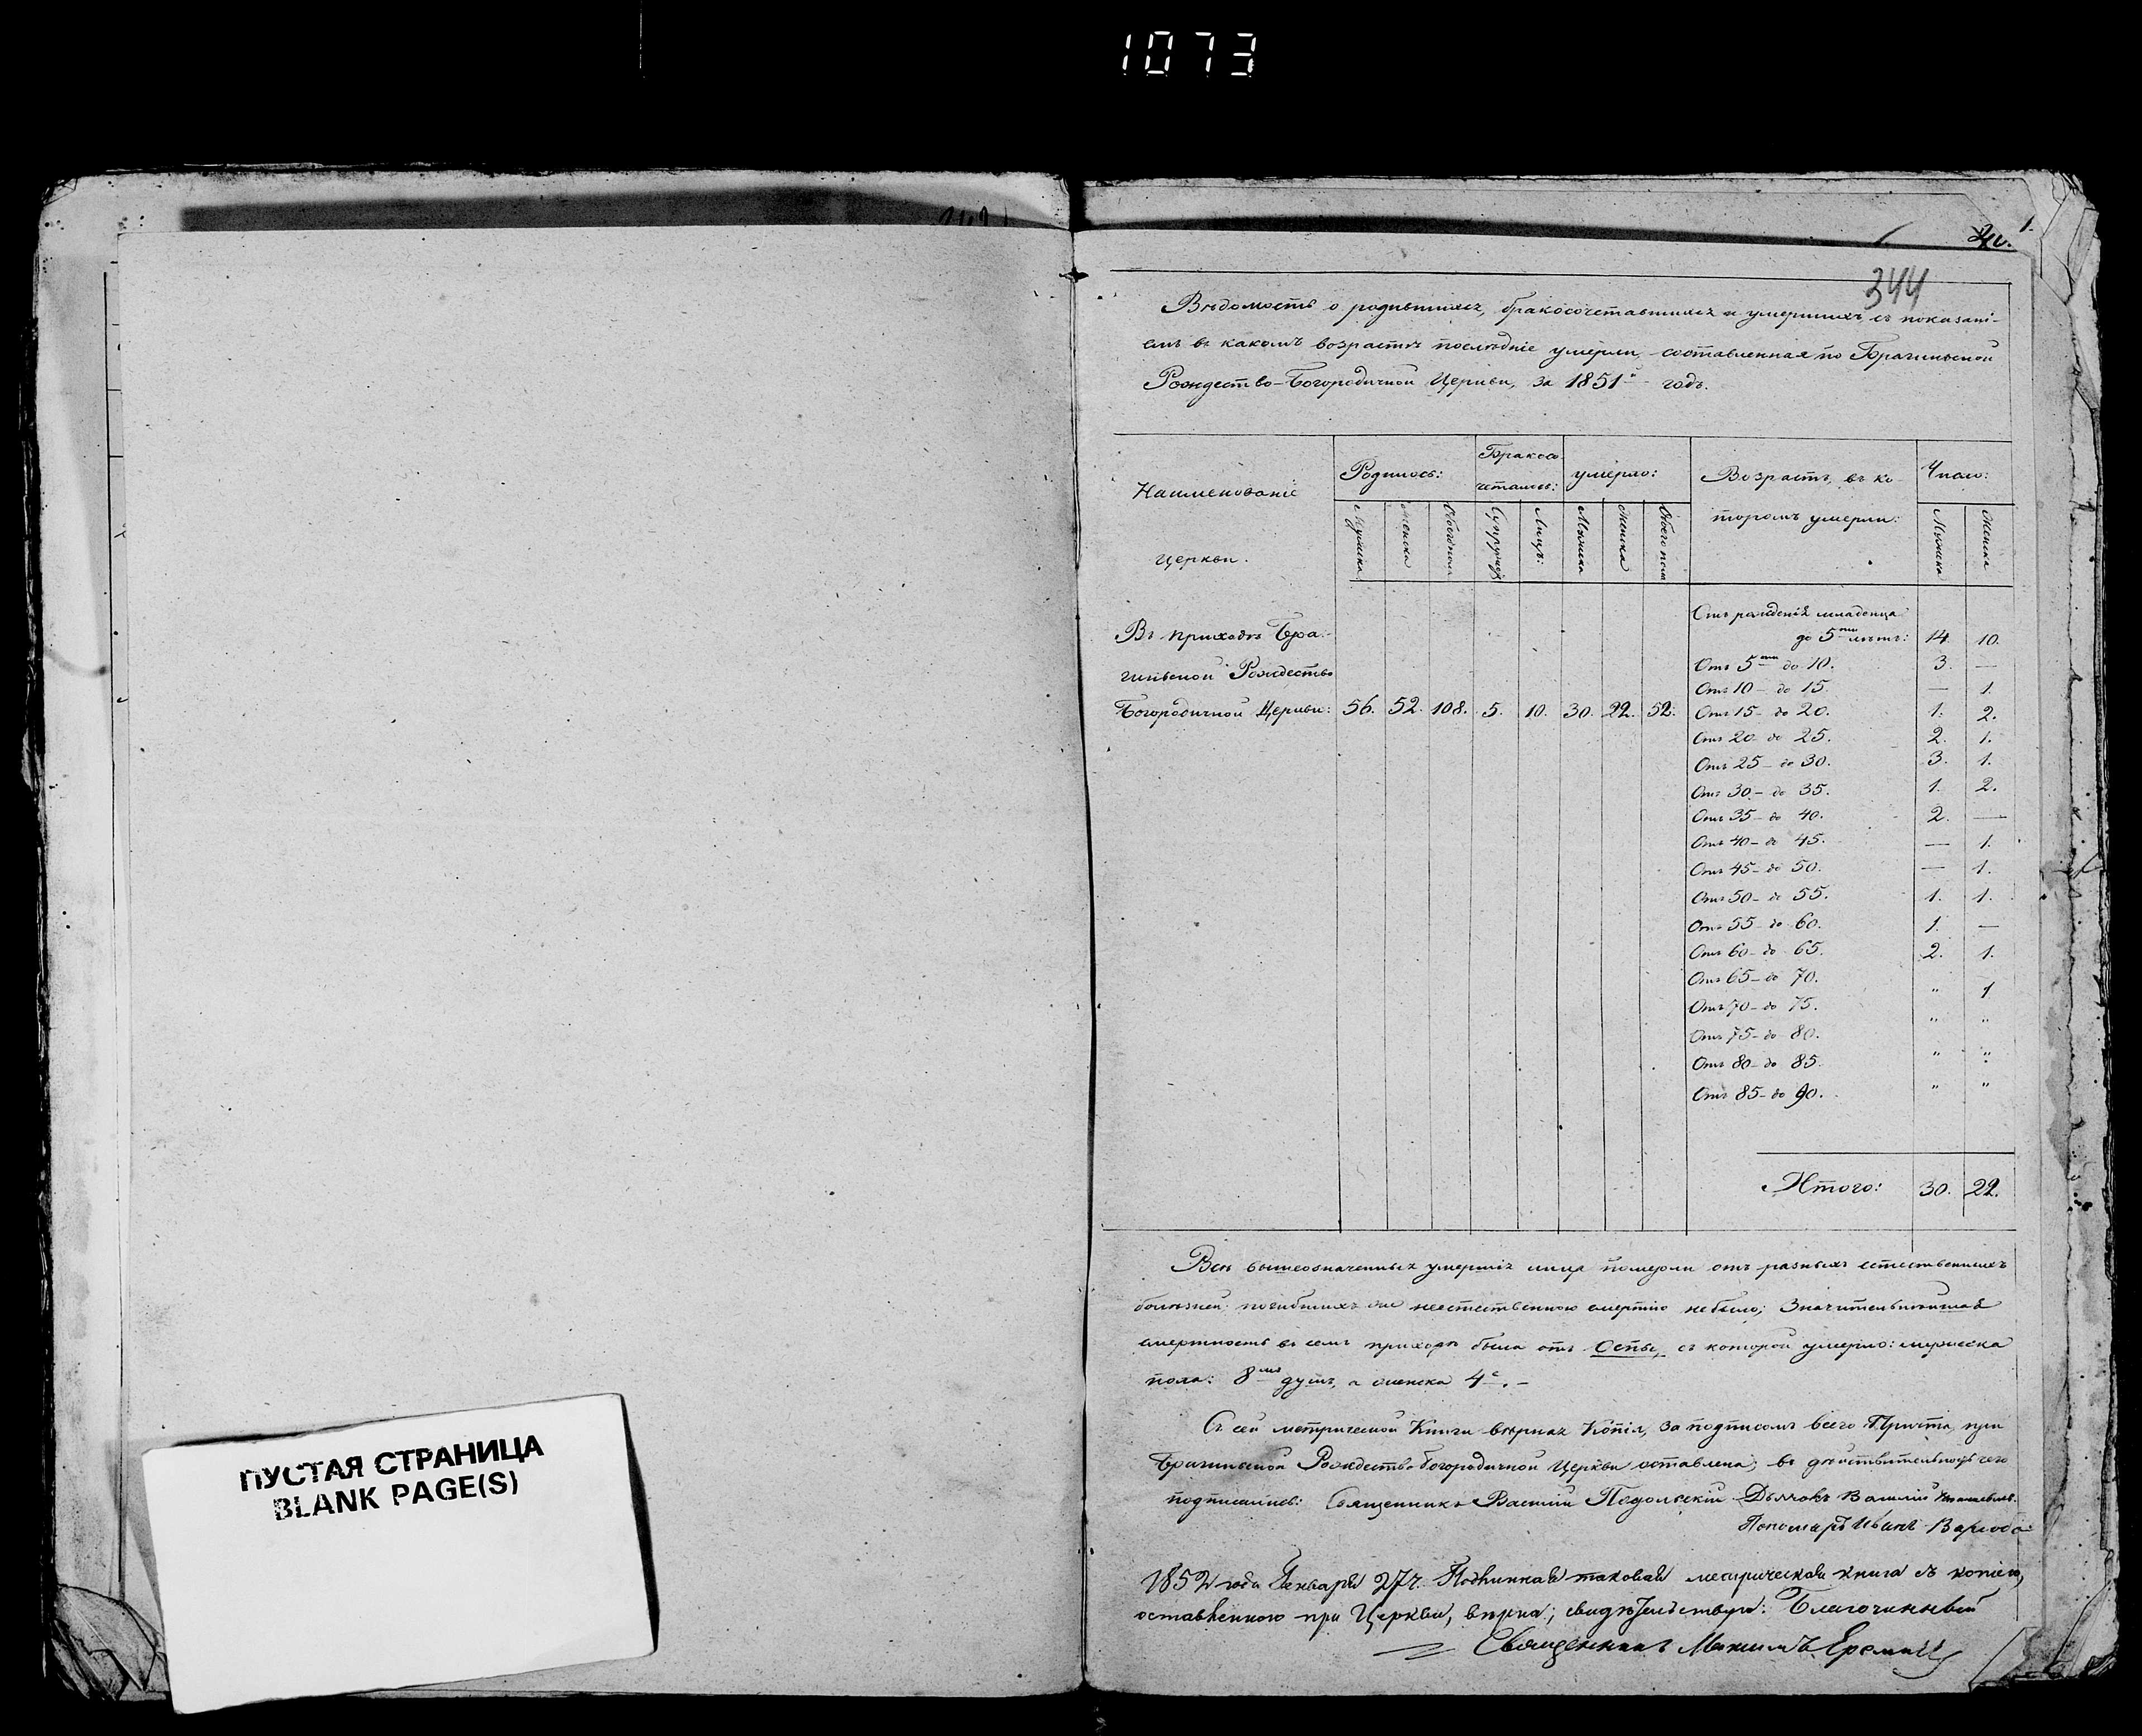 1073
1.
344
Вѣдомость о родившихся, бракосочетавшихся и умершихъ съ показані-
емъ въ какомъ возрастѣ послѣдніе умерли, составленная по Брагинской
Рождество-Богородичной Церкви, за 1851й годъ.
Наименованіе
церкви.
Родилось:
Бракосо
четалось:
умерло:
Возрастъ, въ ко
торомъ умерли:
Число:
Мужска
Женска
Обоего пола
Супружес
Лицъ:
Мужска
Женска
Обоего пола
Мужска
Женска
Въ приходѣ Бра-
гинской Рождество
Богородичной Церкви: 56. 52. 108. 5. 10. 30. 22. 52.
Отъ рожденія младенца
до 5ти лѣтъ: 14. 10.
Отъ 5ти до 10. 3. —
Отъ 10 - до 15. — 1.
Отъ 15 - до 20. 1. 2.
Отъ 20 до 25. 2. 1.
Отъ 25 - до 30. 3. 1.
Отъ 30 - до 35. 1. 2.
Отъ 35 - до 40. 2. —
Отъ 40 - до 45. — 1.
Отъ 45 - до 50. — 1.
Отъ 50 - до 55. 1. 1.
Отъ 55 - до 60. 1. —
Отъ 60 - до 65. 2. 1.
Отъ 65 - до 70. " 1
Отъ 70 - до 75. " "
Отъ 75 - до 80.
Отъ 80 - до 85. " "
Отъ 85 - до 90. " "
Итого: 30. 22.
Всѣ вышеозначенныя умершія лица померли отъ разныхъ естественныхъ
болѣзней; погибшихъ же неестественною смертію небыло; Значительнѣйшая
смертность въ семъ приходѣ была отъ Оспы, съ которой умерло: мужеска
пола: 8мь душъ, а женска 4е. -
Съ сей метрической Книги вѣрная Копія, за подписомъ всего Причта, при
Брагинской Рождество Богородичной Церкви оставлена; въ дѣйствительность чего
подписались: Священникъ Василій Подольскій Дьячокъ Василій
Пономарь Иванъ
1852 года Января 27 ч. Подлинная таковая метрическая книга съ копіею,
оставленною при Церкви, вѣрна; свидѣтельствую: Благочинный
Священникъ Максимъ
ПУСТАЯ СТРАНИЦА
BLANK PAGE(S)